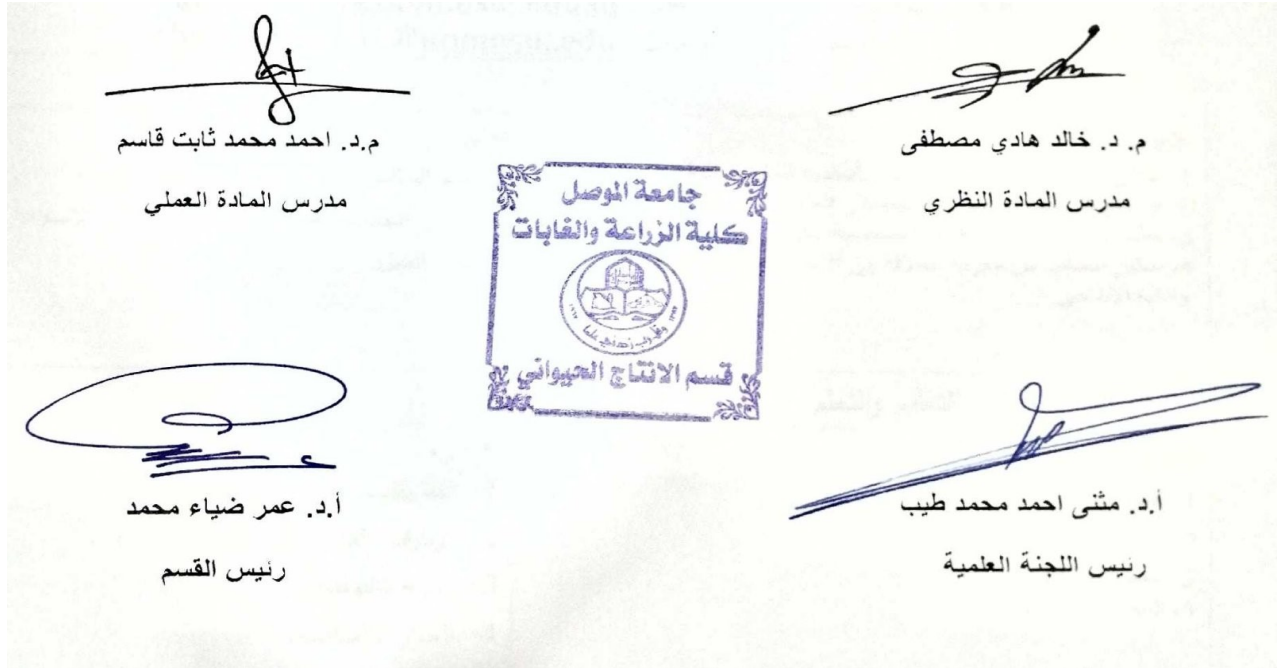 م. د. خالد هادي مصطفى
مدرس المادة النظري
م.د. احمد محمد ثابت قاسم
مدرس المادة العملي
جامعة الموصل
كلية الزراعة والغابات
قسم الانتاج الحيواني
أ.د. مثنى احمد محمد طيب
رئيس اللجنة العلمية
أ.د. عمر ضياء محمد
رئيس القسم